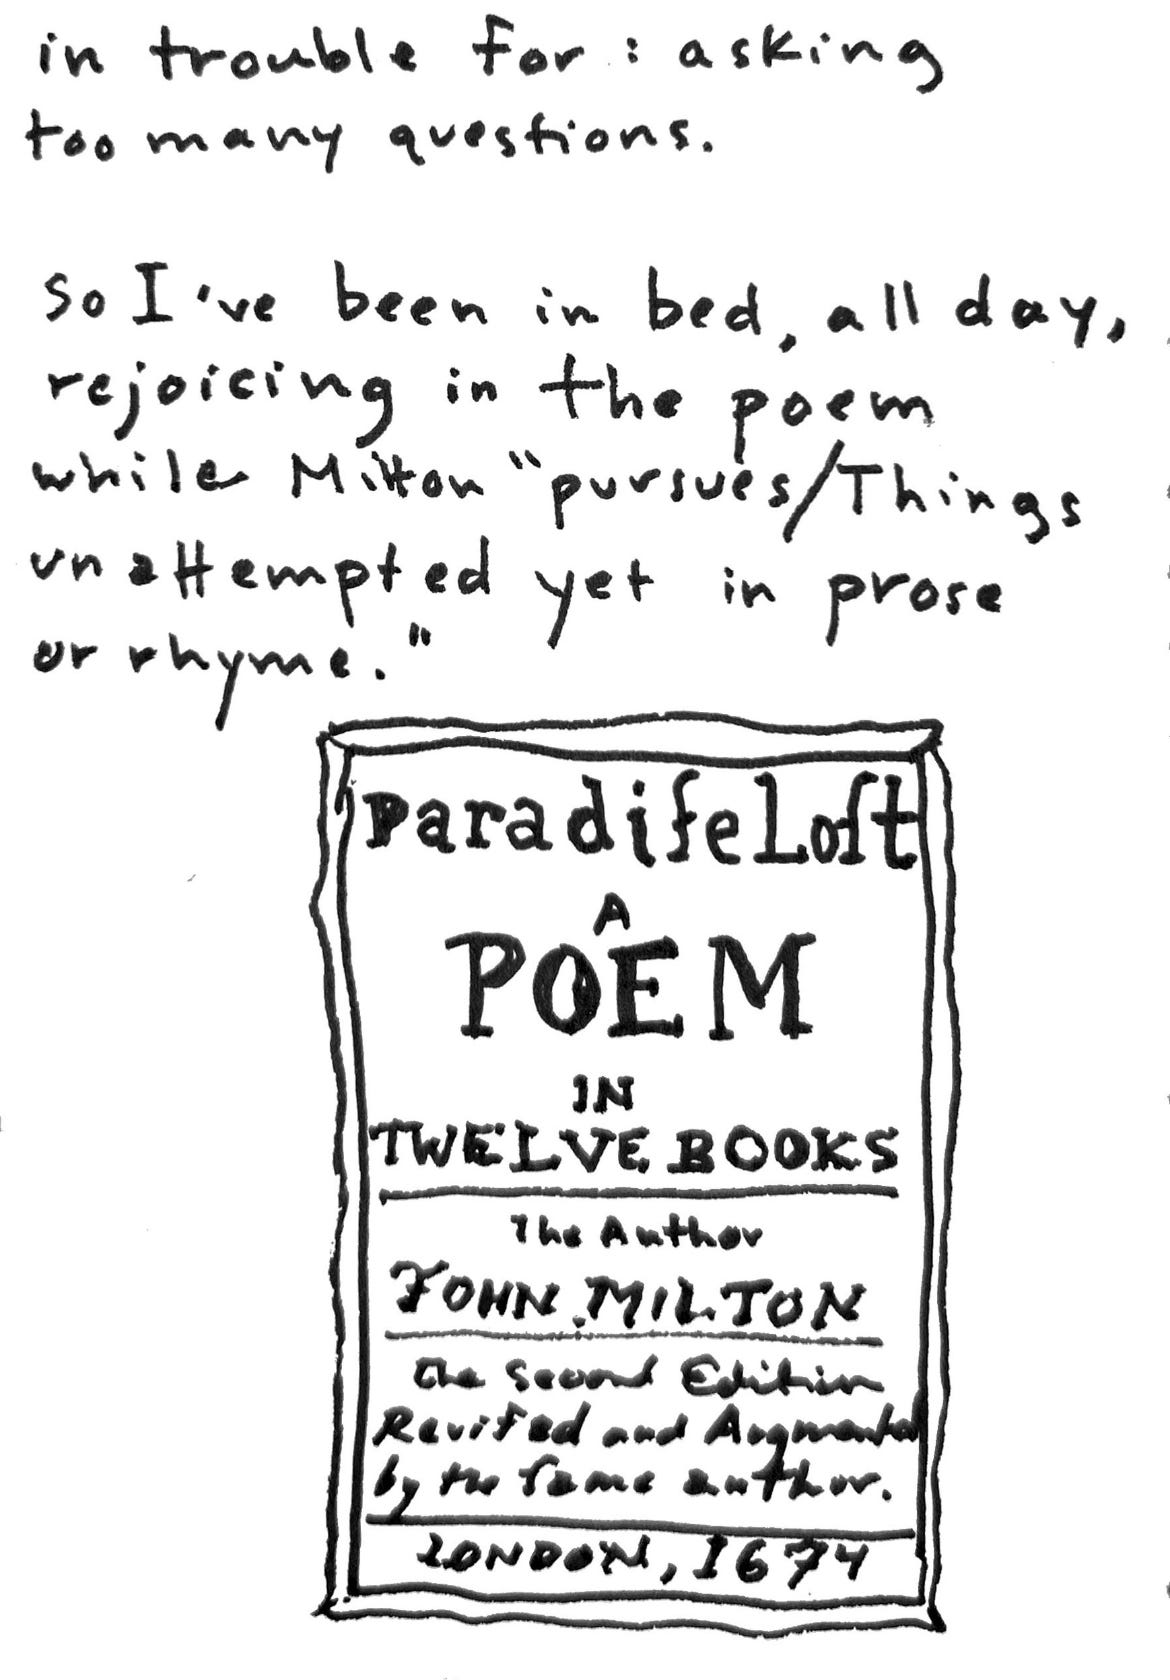 in trouble for: asking
too many questions.
So I've been in bed, all day,
rejoicing in the poem
while Milton "pursues/Things
unattempted yet in prose
or rhyme."
Paradiſe Loſt
A
POEM
IN
TWELVE BOOKS
The Author
JOHN MILTON
The Second Edition
Reviſed and Augmented
by the ſame author.
LONDON, 1674